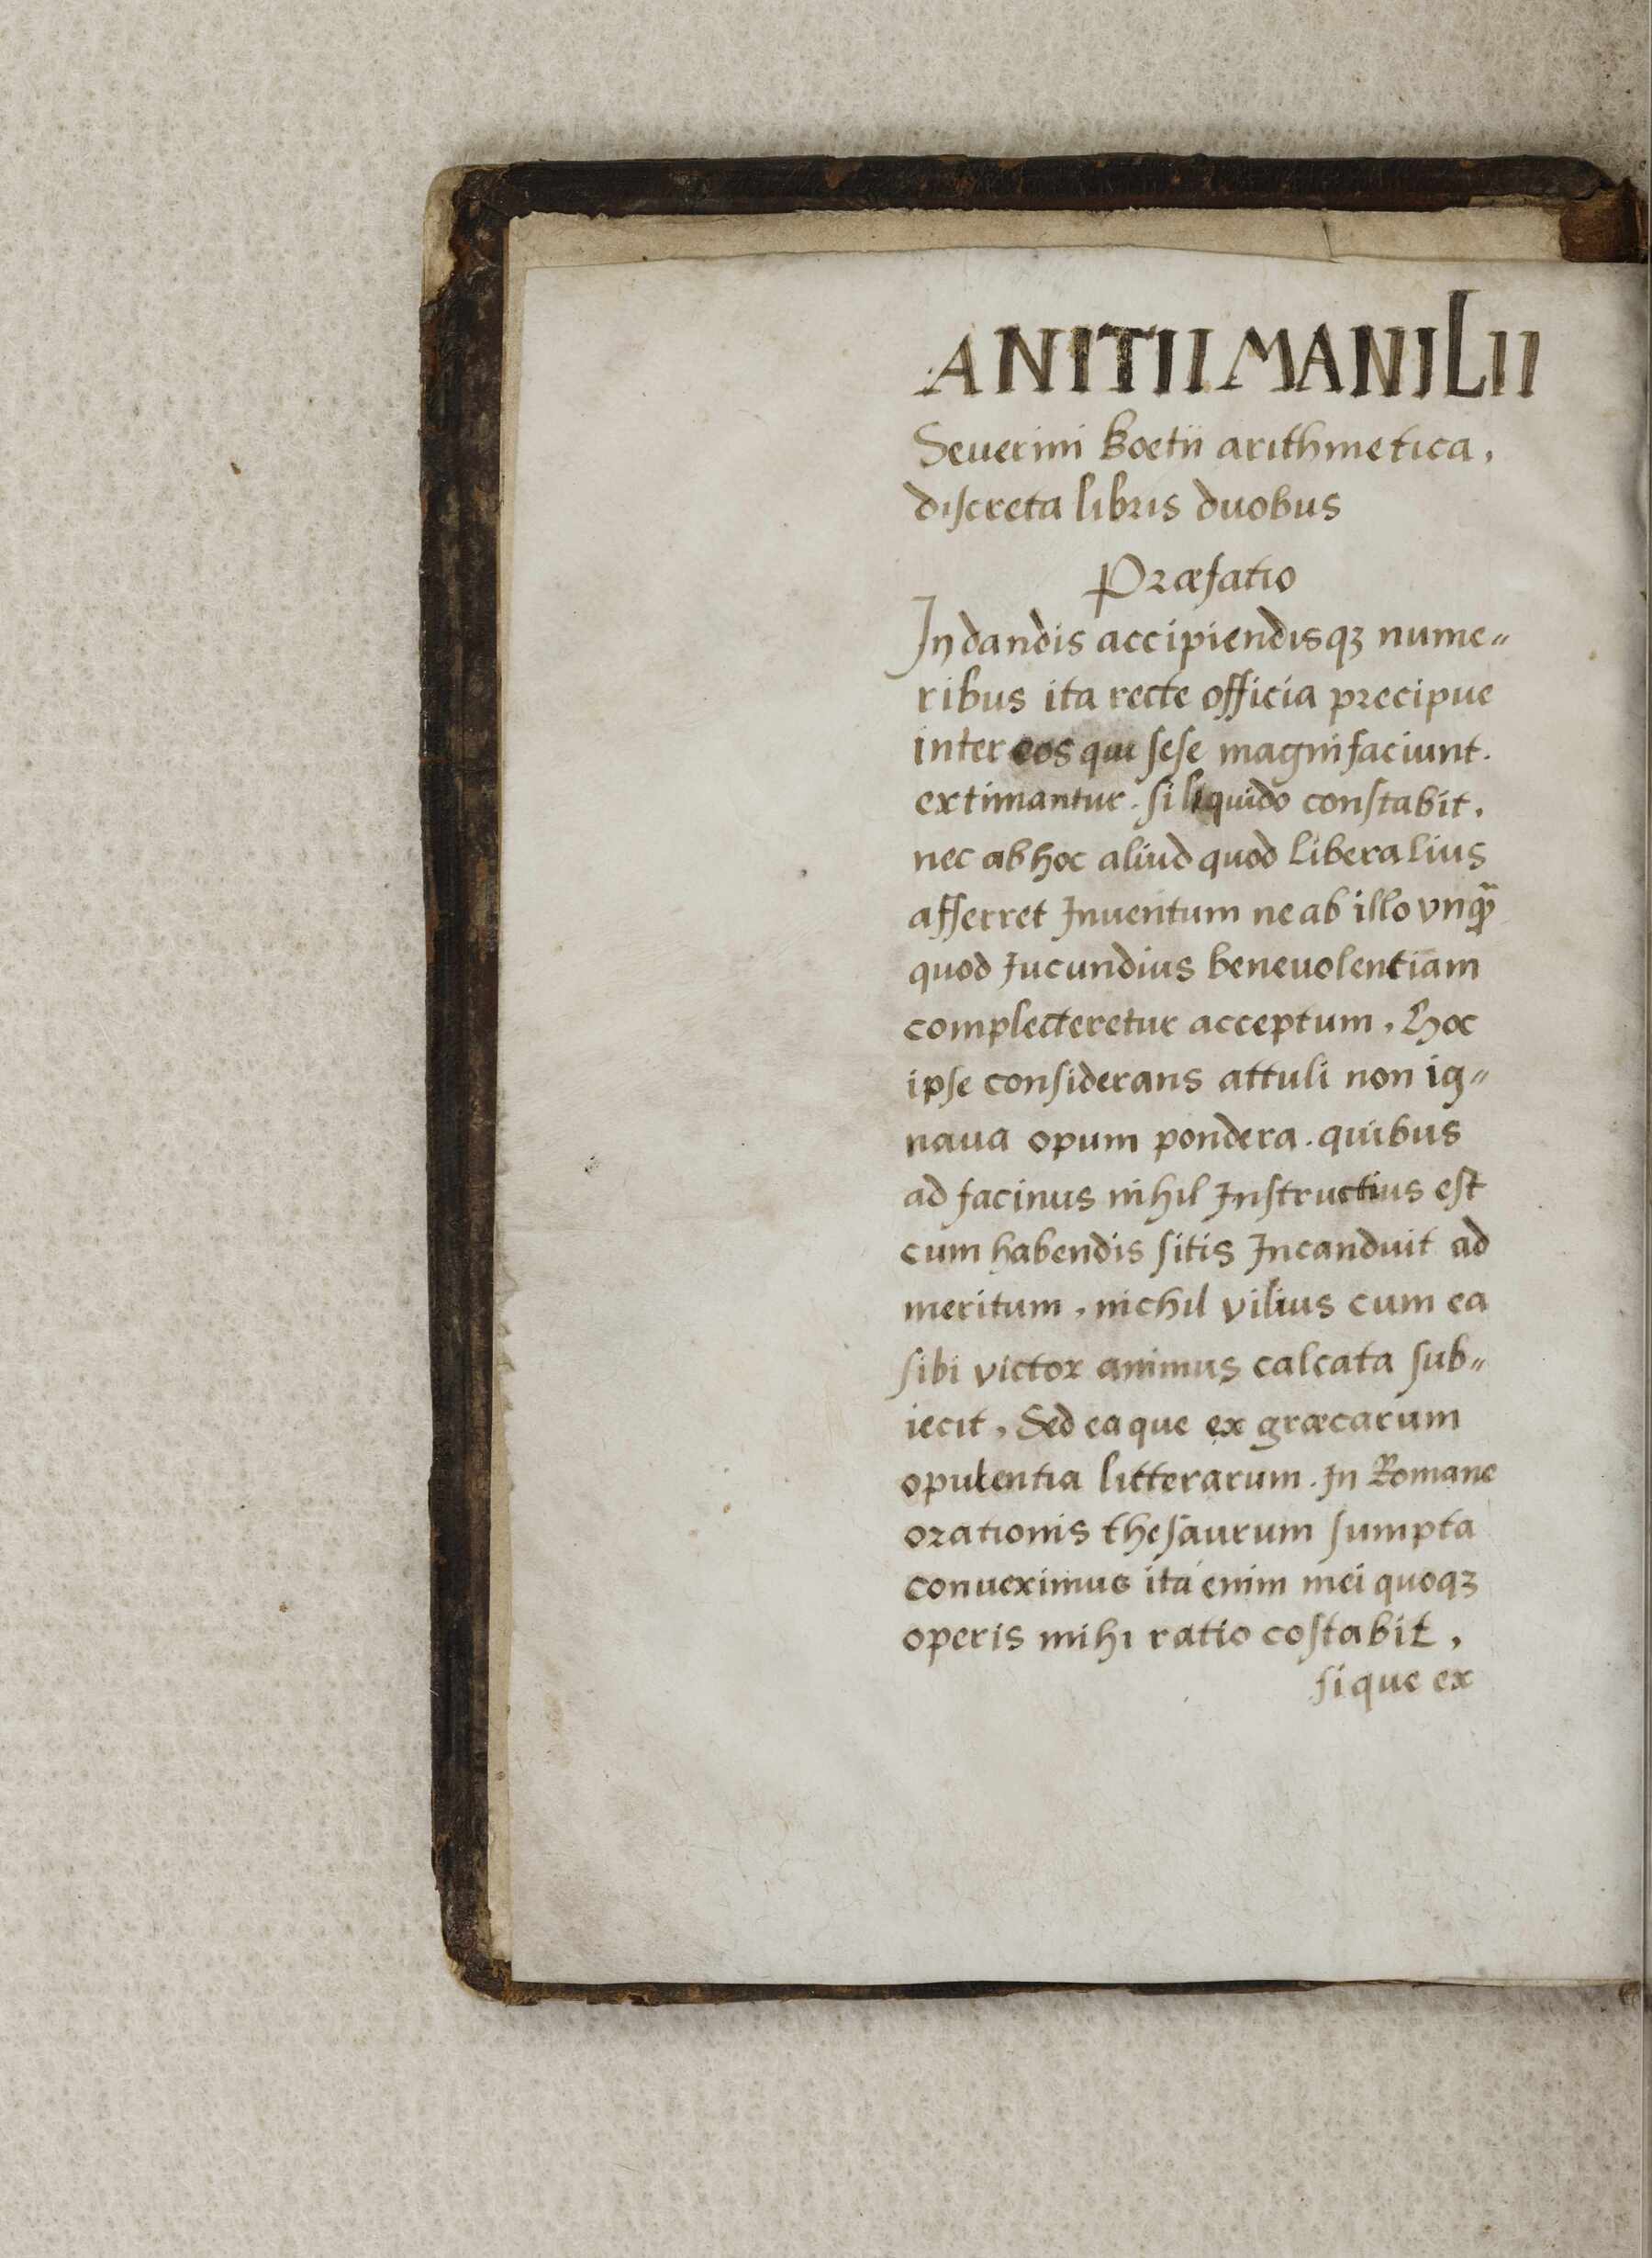 ANITII MANILII
Seuerini Boetii arithmetica,
discreta libris duobus
Præfatio
In dandis accipiendisqꝫ nume〃
ribus ita recte officia precipue
inter eos qui sese magni faciunt.
extimantur. si liquido constabit.
nec ab hoc aliud quod liberalius
afferret Inuentum ne ab illo vnqꝫ̃
quod Jucundius beneuolentiam
complecteretur acceptum, Hoc
ipse considerans attuli non ig〃
naua opum pondera. quibus
ad facinus nihil Instructius est
cum habendis sitis Incanduit ad
meritum, nichil vilius cum ea
sibi victor animus calcata sub〃
iecit, Sed ea que ex græcarum
opulentia litterarum. In Romane
orationis thesaurum sumpta
conueximus ita enim mei quoqꝫ
operis mihi ratio costabit,
si que ex